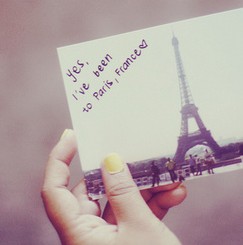 Yes,
I've been
to Paris, France♡